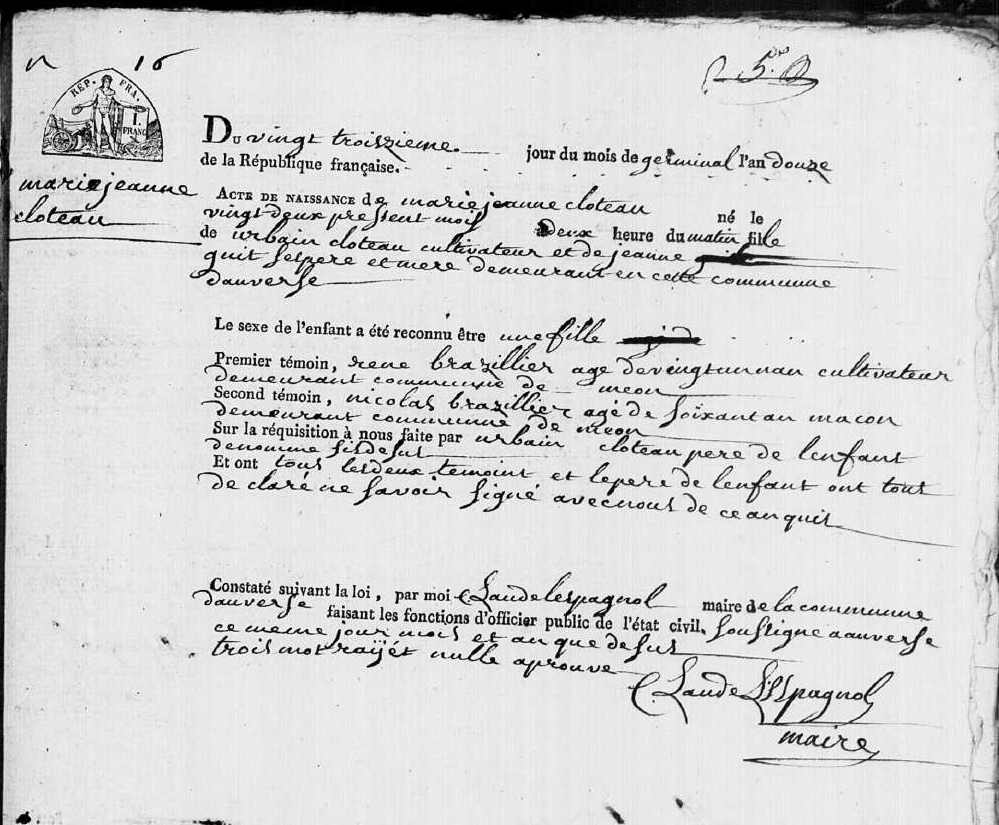 n 16
5.
REP. FRA.
1. FRANC
DU vingt troiszieme. jour du mois de germinal l'an douze
de la République française.
marie jeanne
cloteau
ACTE DE NAISSANCE de marie jeanne cloteau né le
vingt deux present mois a deux heure du matin fille
de urbain cloteau cultivateur et de jeanne
guit ses pere et mere demeurant en cette commune
dauverse
Le sexe de l'enfant a été reconnu être une fille
Premier témoin, rene brazillier age de vingt un nan cultivateur
demeurant commune de meon
Second témoin, nicolas brazillier agé de soixant an macon
demeurant commune de meon
Sur la réquisition à nous faite par urbain cloteau pere de lenfant
denomme sis desut
Et ont tous les deux temoint et le pere de lenfant ont tout
de claré ne savoir signé avec nous de ce an quit
Constaté suivant la loi, par moi Claude lespagnol maire de la commune
dauverse faisant les fonctions d'officier public de l'état civil. soussigne a auverse
ce meme jour mois et an que desus
trois mot raijét nulle aprouve
Claude Lespagnol
maire